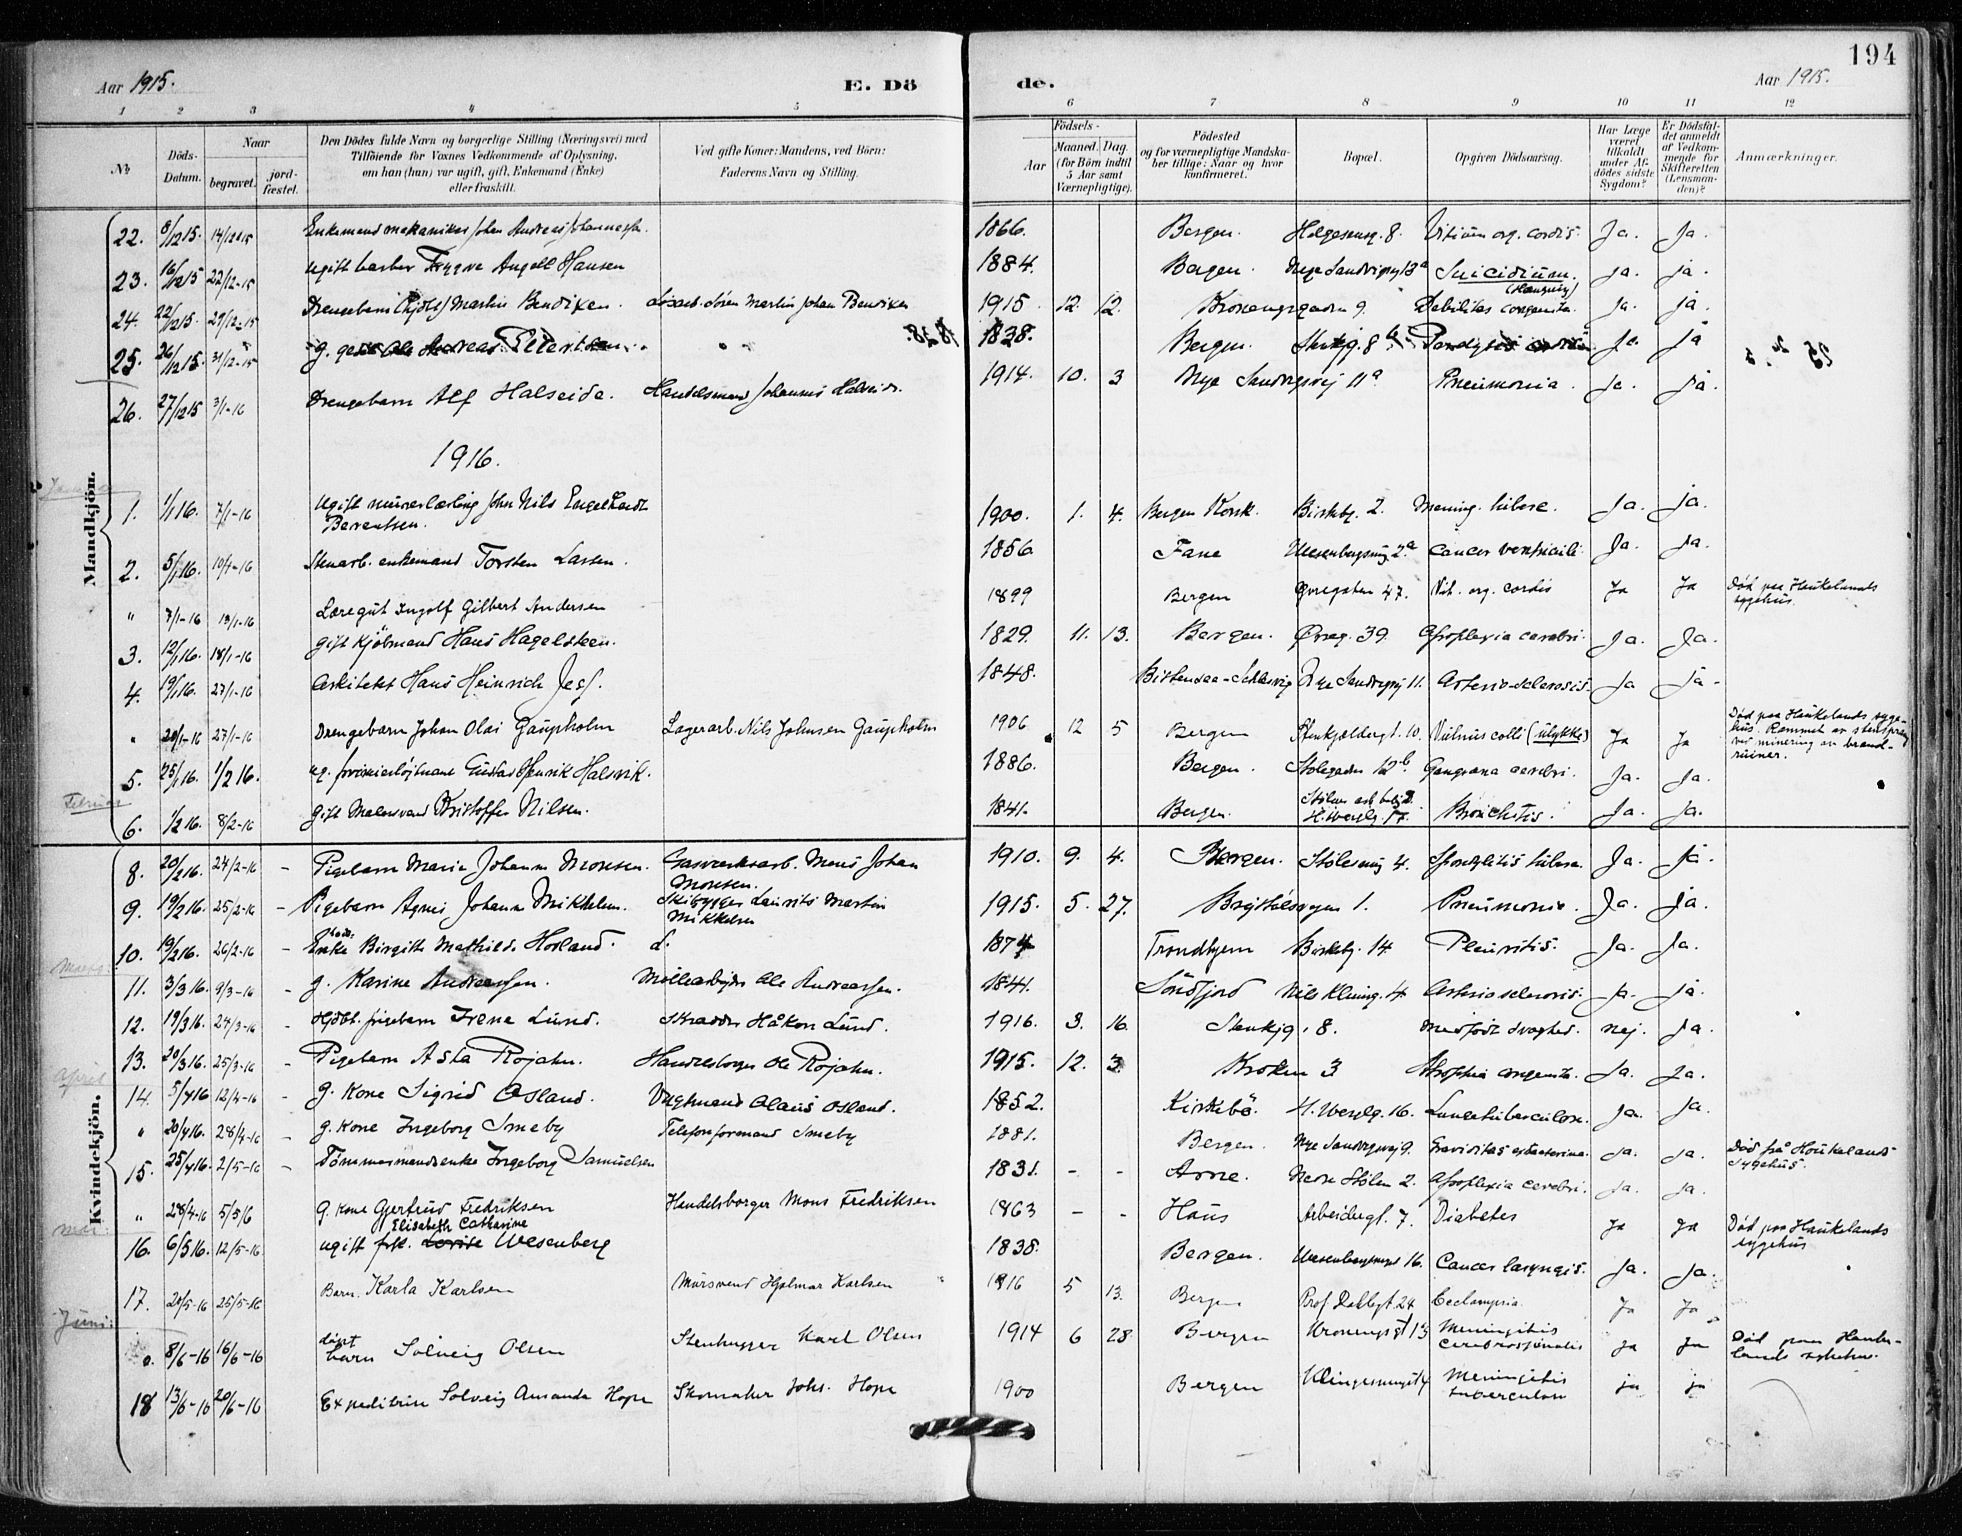 194
Aar 1915.
E. Dö
de.
Aar 1915.
1 2 3 4 5 6 7 8 9 10 11 12
No
Döds-Datum.
Naar
begravet.
jord-fæstet.
Den Dödes fulde Navn og borgerlige Stilling (Næringsvei) med
Tilföiende for Voxnes Vedkommende af Oplysning,
om han (hun) var ugift, gift, Enkemand (Enke)
eller fraskilt.
Ved gifte Koner: Mandens, ved Börn:
Faderens Navn og Stilling.
Födsels-
Aar
Maaned. Dag.
(for Börn indtil
5 Aar samt
Værnepligtige).
Födested
og for værnepligtige Mandska-
ber tillige: Naar og hvor
konfirmeret.
Bopæl.
Opgiven Dödsaarsag.
Har Læge
været
tilkaldt
under Af-
dödes sidste
Sygdom?
Er Dödsfal-
det anmeldt
af Vedkom-
mende for
Skifteretten
(Lensman-
den)?
Anmærkninger.
Mandkjön.
22. 8/12 15. 14/12 15 Enkemand mekaniker Johan Andreas Johannessen. 1866. Bergen. Helgesensg. 8. Vitium org. cordis. Ja. Ja.
23. 16/12 15 22/12-15 Ugift barber Trygve Angell Hansen 1884. Bergen. Nye Sandviksvej 13a Suicidium. (Hængning) ja. ja.
24. 22/12 15. 29/12-15 Drengebarn Martin Bendixen. Søren Martin Johan Bendixen 1915 12. 12. Kroneng​sgaden 9. Debilitas congenita. Ja. ja.
25. 26/12 15. 31/12-15 g. Ole Andreas Eilertsen. 1838. 1838. Bergen. 8 b. Paralysis cordis Ja. ja
26. 27/12 15 3/1-16 Drengebarn Alf Halseide. Handelsmand Johannes Halseide. 1914. 10. 3 Nye Sandvigsvej 11a Pneumonia. Ja. ja.
1916.
Januar
1. 1/1 16. 7/1-16 Ugift murerlærling John Nils Engelhardt
Berentsen. 1900. 1. 4. Bergen Korsk. Birkebg. 2. Mening. tuberc. Ja. ja.
2. 5/1 16. 10/1-16 Stenarb. enkemand Torsten Larsen. 1856. Fane Wesenbergsmug 2a Cancer ventriculi. Ja. ja.
" 7/1-16 13/1-16 Læregut Ingolf Gilbert Andersen 1899 Bergen Øvregaten 47. Vit. org. cordis Ja Ja Død paa Haukelands
sygehus.
3. 12/1 16. 18/1-16 gift kjøbmand Hans Hagelsteen. 1829. 11. 13. Bergen. Øvreg. 39. Apoplexia cerebri. Ja. Ja.
4. 19/1 16. 27/1-16 Arkitekt Hans Heinrich Jess. 1848. Bistensee-Schlesvig Nye Sandvigsvej 11. Arterio-sclerosis. Ja ja
" 20/1-16 27/1-16 Drengebarn Johan Olai Gaupholm Lagerarb. Nils Johnsen Gaupholm 1906 12 5 Bergen Stenkjeldergt. 10. Vulnus colli (ulykke) Ja Ja Død paa Haukelands syge-
hus. Rammet av stensprang
ved minering av brand-
ruiner.
5. 25/1 16. 1/2 16. ug. premierløjtnant Gustav Henrik Halsvik. 1886. Bergen. Stølegaden 12b. Gangræna cerebri. Ja. Ja.
Februar
6. 1/2 16. 8/2-16 gift Malersvend Kristoffer Nilsen. 1841. Bergen. Stølens arb. bolig
H. Weselg. 17. Bronchitis. Ja. Ja.
Kvindekjön.
8. 20/2 16. 24/2-16 - Pigebarn Marie Johanne Monsen. Gasverksarb. Mons Johan
Monsen. 1910. 9. 4. Bergen. Stølesmug 4. Spondylitis tuberc. Ja. ja
9. 19/2 16. 25/2-16 - Pigebarn Agnes Johanne Mikkelsen. Skibygger Laurits Martin
Mikkelsen 1915. 5. 27. 1. Pneumonia. Ja. ja.
10. 19/2 16. 26/2-16 - Enke Birgithe Mathilde Hovland. d. 1874 Trondhjem Birkebg. 14 Pleuritis. Ja. Ja.
Marts:
11. 3/3 16. 9/3-16 - g. Karine Andreassen. Møllearbejder Ole Andreassen. 1841. Söndfjord Nils Klimsg. 4. Arterio sclerosis. ja. ja
12. 19/3 16. 24/3-16 - Hjdbt. pigebarn Irene Lund. Skrædder Håkon Lund. 1916. 3. 16. Stenkjg. 8. Medfødt svaghed. nej. Ja.
13. 20/3 16. 25/3-16 - Pigebarn Asta Rojahn. Handelsborger Ole Rojahn. 1915. 12. 3 Kroken 3 Atrophia congenita. Ja. Ja.
April
14. 5/4 16 12/4-16 - g. Kone Sigrid Osland. Vægtmand Olaus Osland. 1852. Kirkebø. H. Weselg. 16. Lungetuberculose. ja. ja.
" 20/4 16. 28/4-16 - g. Kone Ingeborg Smeby Telefonformand Smeby 1881. Bergen. Nye Sandvigsvej 9. Graviditas extrauterina. Ja. ja. Død på Haukelands
sygehus.
15. 25/4 16. 2/5-16 - Tømmermandsenke Ingeborg Samuelsen 1831. - - Arne. Nedre Stølen 2. Apoplexia cerebri. ja. ja.
" 28/4-16 5/5 16 g. Kone Gjertrud Fredriksen Handelsborger Mons Fredriksen 1863 - - Haus Arbeidergt. 7. Diabetes Ja Ja Død paa Haukelands
sygehus
Mai:
Elisabeth Catharine
16. 6/5 16. 12/5-16. ugift frk. Lovise Wesenberg 1838. Bergen. Wesenbergsmug 16. Cancer laryngis. Ja. Ja.
17. 20/5-16 25/5-16 Barn. Karla Karlsen Mursvend Hjalmar Karlsen 1916 5 13. Bergen Prof. Dahlsgt. 24 Eeclampsia. Ja Ja
Juni:
8/6-16 16/6-16 døpt
barn Solveig Olsen Stenhugger Karl Olsen 1914 6 28 Bergen Kronengsgt 13 Meningitis
cerebrospinalis Ja Ja Død paa Hauke-
lands sykehus.
18 13/6-16 20/6-16 Expeditrise Solveig Amanda Hope Skomaker Johs. Hope 1900 Bergen Klingesmuget 4 Meningitis
tuberculosa ja ja